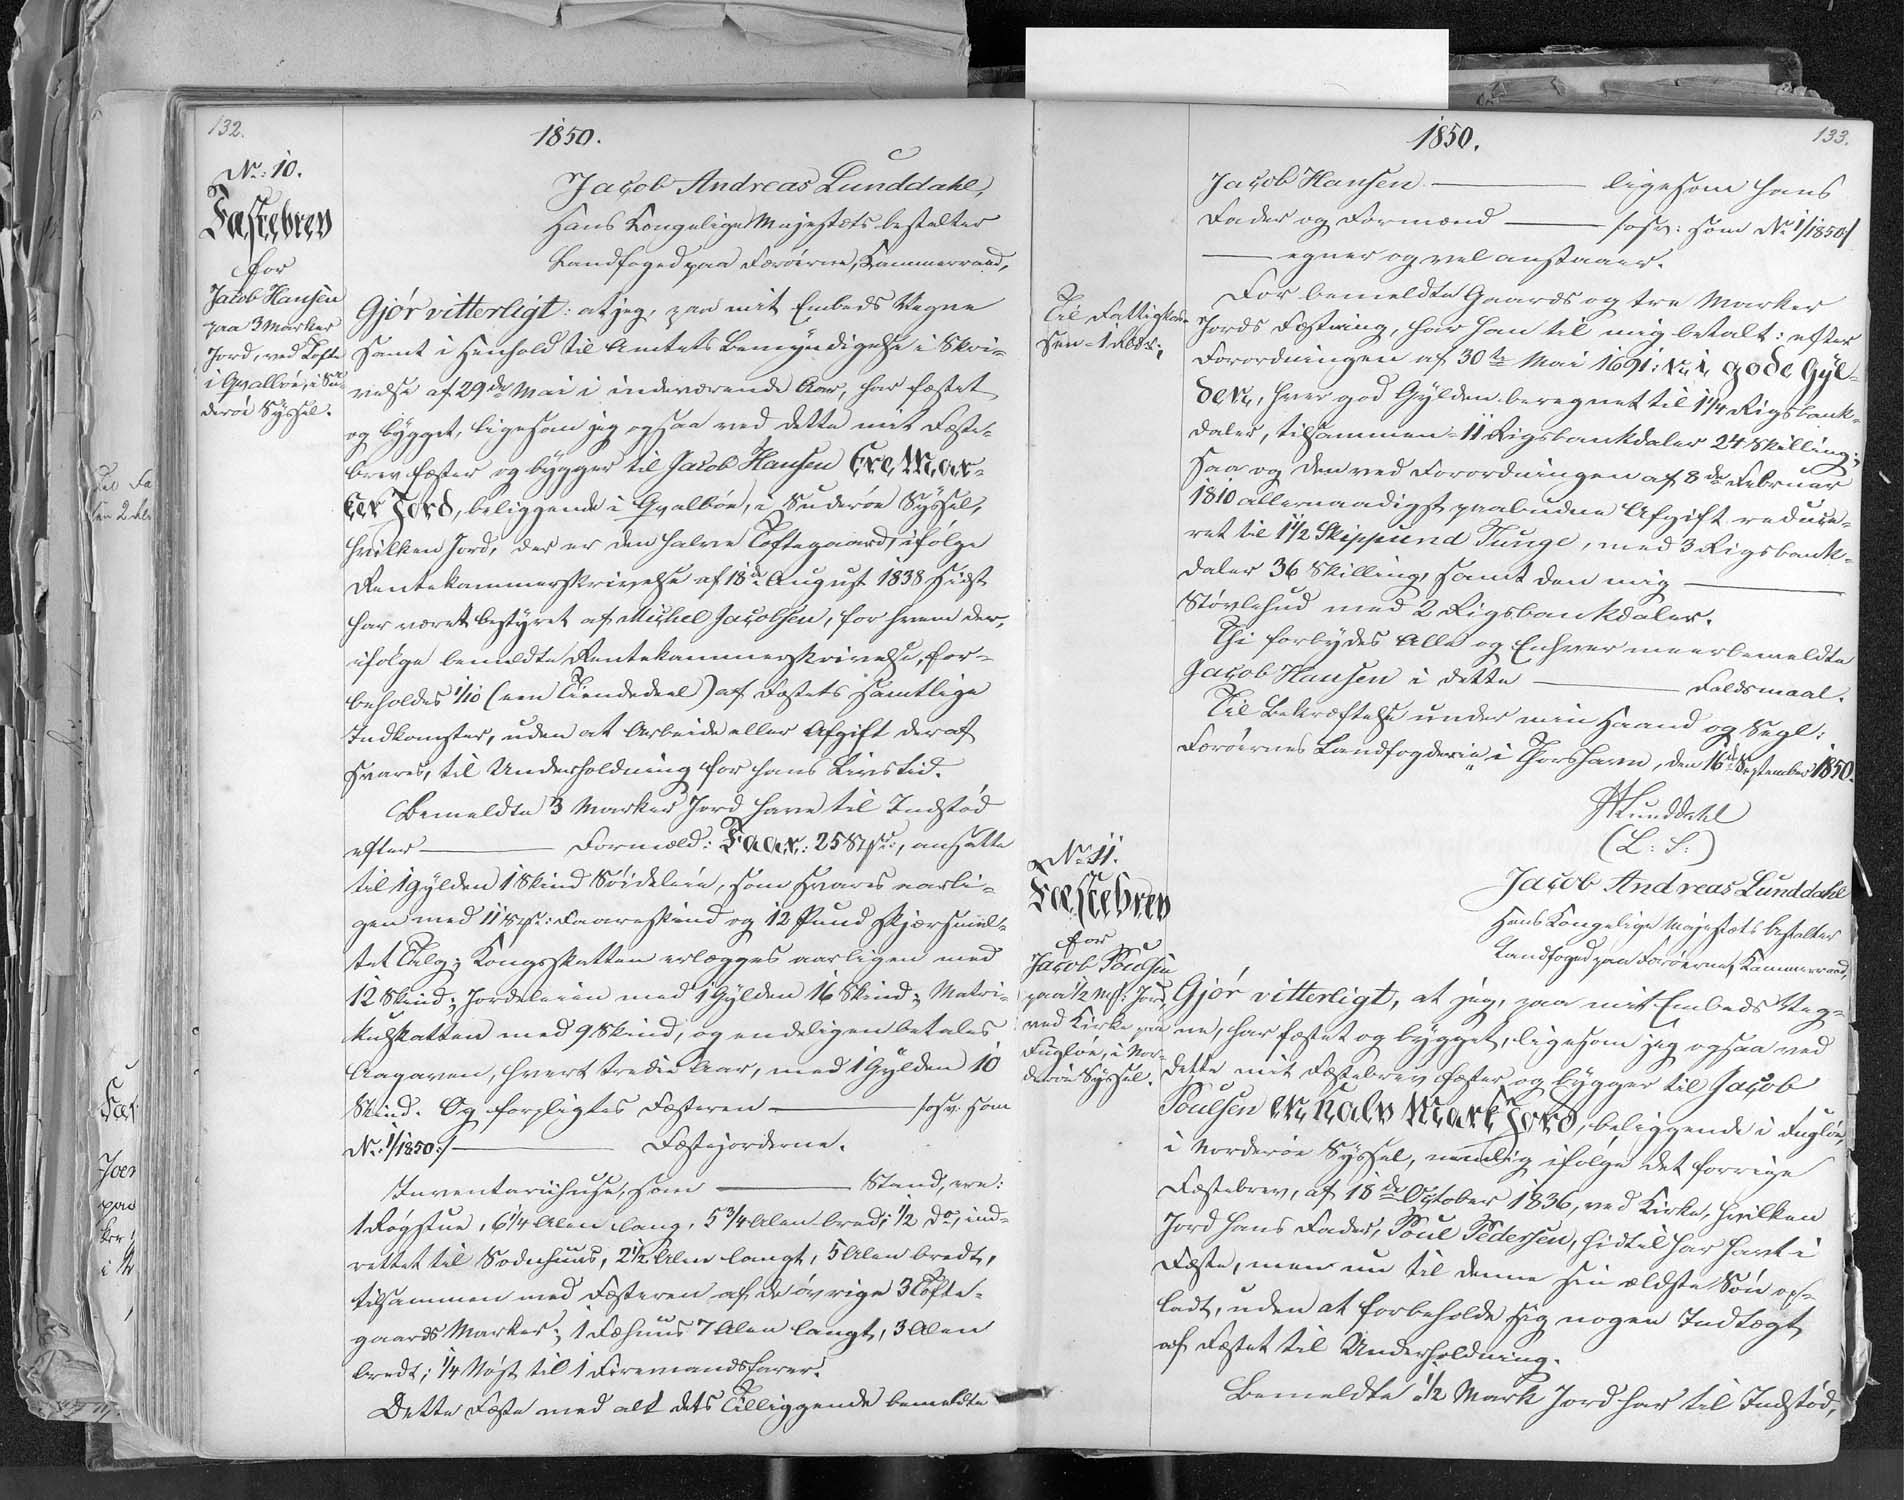 132.
1850.
No: 10.
Fæstebrev
for
Jacob Hansen
paa 3 Marker
Jord, ved Tofte
i Qvalbøe, i Su-
derøe Syssel.
Jacob Andreas Lunddahl,
Hans Kongelige Majestæts bestalter
Landfoged paa Færøerne, Kammerraad,
Gjør vitterligt: at jeg, paa mit Embeds Vegne
samt i Henhold til Amtets Bemyndigelse i Skri-
velse af 29de Mai i indeværende Aar, har fæstet
og bygget, ligesom jeg ogsaa ved dette mit Fæste-
brev fæster og bygger til Jacob Hansen tre Mar-
ker Jord, beliggende i Qvalbøe, i Suderøe Syssel,
hvilken Jord, der er den halve Toftegaard, ifølge
Rentekammerskrivelse af 18de August 1838 sidst
har været bestyret af Michel Jacobsen, for hvem der,
ifølge bemeldte Rentekammerskrivelse, for-
beholdes 1/10 (een Tiendedeel) af Fæstets samtlige
Indkomster, uden at Arbeide eller Afgift deraf
svares, til Underholdning for hans Livstid.
Bemeldte 3 Marker Jord have til Indstød
efter ——— Formæld: Faar: 25 Stk:, ansatte
til 1 Gylden 1 Skind Søideleie, som svares aarli-
gen med 11 Stk: Faareskind og 12 Pund skjærsmel-
tet Talg; Kongsskatten erlægges aarligen med
12 Skind; Jordeleien med 1 Gylden 16 Skind; Matri-
kulskatten med 9 Skind, og endeligen betales
Aagaven, hvert tredie Aar, med 1 Gylden 10
Skind. Og forpligtes Fæsteren ——— /:osv: som
No: 1/1850:/ ——— Fæstejorderne.
Inventariihuse, som ——— Stand, ere:
1 Røgstue, 6 1/4 Alen lang, 5 3/4 Alen bred; 1/2 do, ind-
rettet til Sodnhuus, 2 1/2 Alen langt, 5 Alen bredt,
tilsammen med Fæsteren af de øvrige 3 Tofte-
gaards Marker; 1 Fæhuus 7 Alen langt, 3 Alen
bredt; 1/4 Nøst til 1 Firemandsfarer.
Dette Fæste med alt dets Tilliggende bemeldte
1850.
133.
Jacob Hansen ——— ligesom hans
Fader og Formænd ——— /:osv: som No 1/1850:/
——— egner og vel anstaaer.
Til Fattigkas-
sen - 1 Rbdr.
For bemeldte Gaards og tre Marker
Jords Fæstning, har han til mig betalt: efter
Forordningen af 30te Mai 1691: Ni gode Gyl-
den, hver god Gylden beregnet til 1 1/4 Rigsbank-
daler, tilsammen = 11 Rigsbankdaler 24 Skilling;
saa og den ved Forordningen af 8de Februar
1810 allernaadigst paabudne Afgift reduce-
ret til 1 1/2 Skippund Tunge, med 3 Rigsbank-
daler 36 Skilling, samt den mig ———
Støvlehud med 2 Rigsbankdaler.
Thi forbydes Alle og Enhver meerbemeldte
Jacob Hansen i dette ——— Faldsmaal.
Til Bekræftelse under min Haand og Segl:
Færøernes Landfogderie i Thorshavn, den 16de September 1850.
Lunddahl
(L: S:)
No 11.
Fæstebrev
for
Jacob Poulsen
paa 1/2 Mk: Jord
ved Kirke, paa
Fugløe, i Nor-
derøe Syssel.
Jacob Andreas Lunddahl
Hans Kongelige Majestæts bestalter
Landfoged paa Færøerne, Kammerraad,
Gjør vitterligt, at jeg, paa mit Embeds Veg-
ne, har fæstet og bygget, ligesom jeg ogsaa ved
dette mit Fæstebrev fæster og bygger til Jacob
Poulsen en halv Mark Jord, beliggende i Fugløe,
i Norderøe Syssel, nemlig ifølge det forrige
Fæstebrev, af 18de October 1836, ved Kirke, hvilken
Jord hans Fader, Poul Pedersen, hidtil har havt i
Fæste, men nu til denne sin ældste Søn op-
ladt, uden at forbeholde sig nogen Indtægt
af Fæstet til Underholdning.
Bemeldte 1/2 Mark Jord har til Indstød,